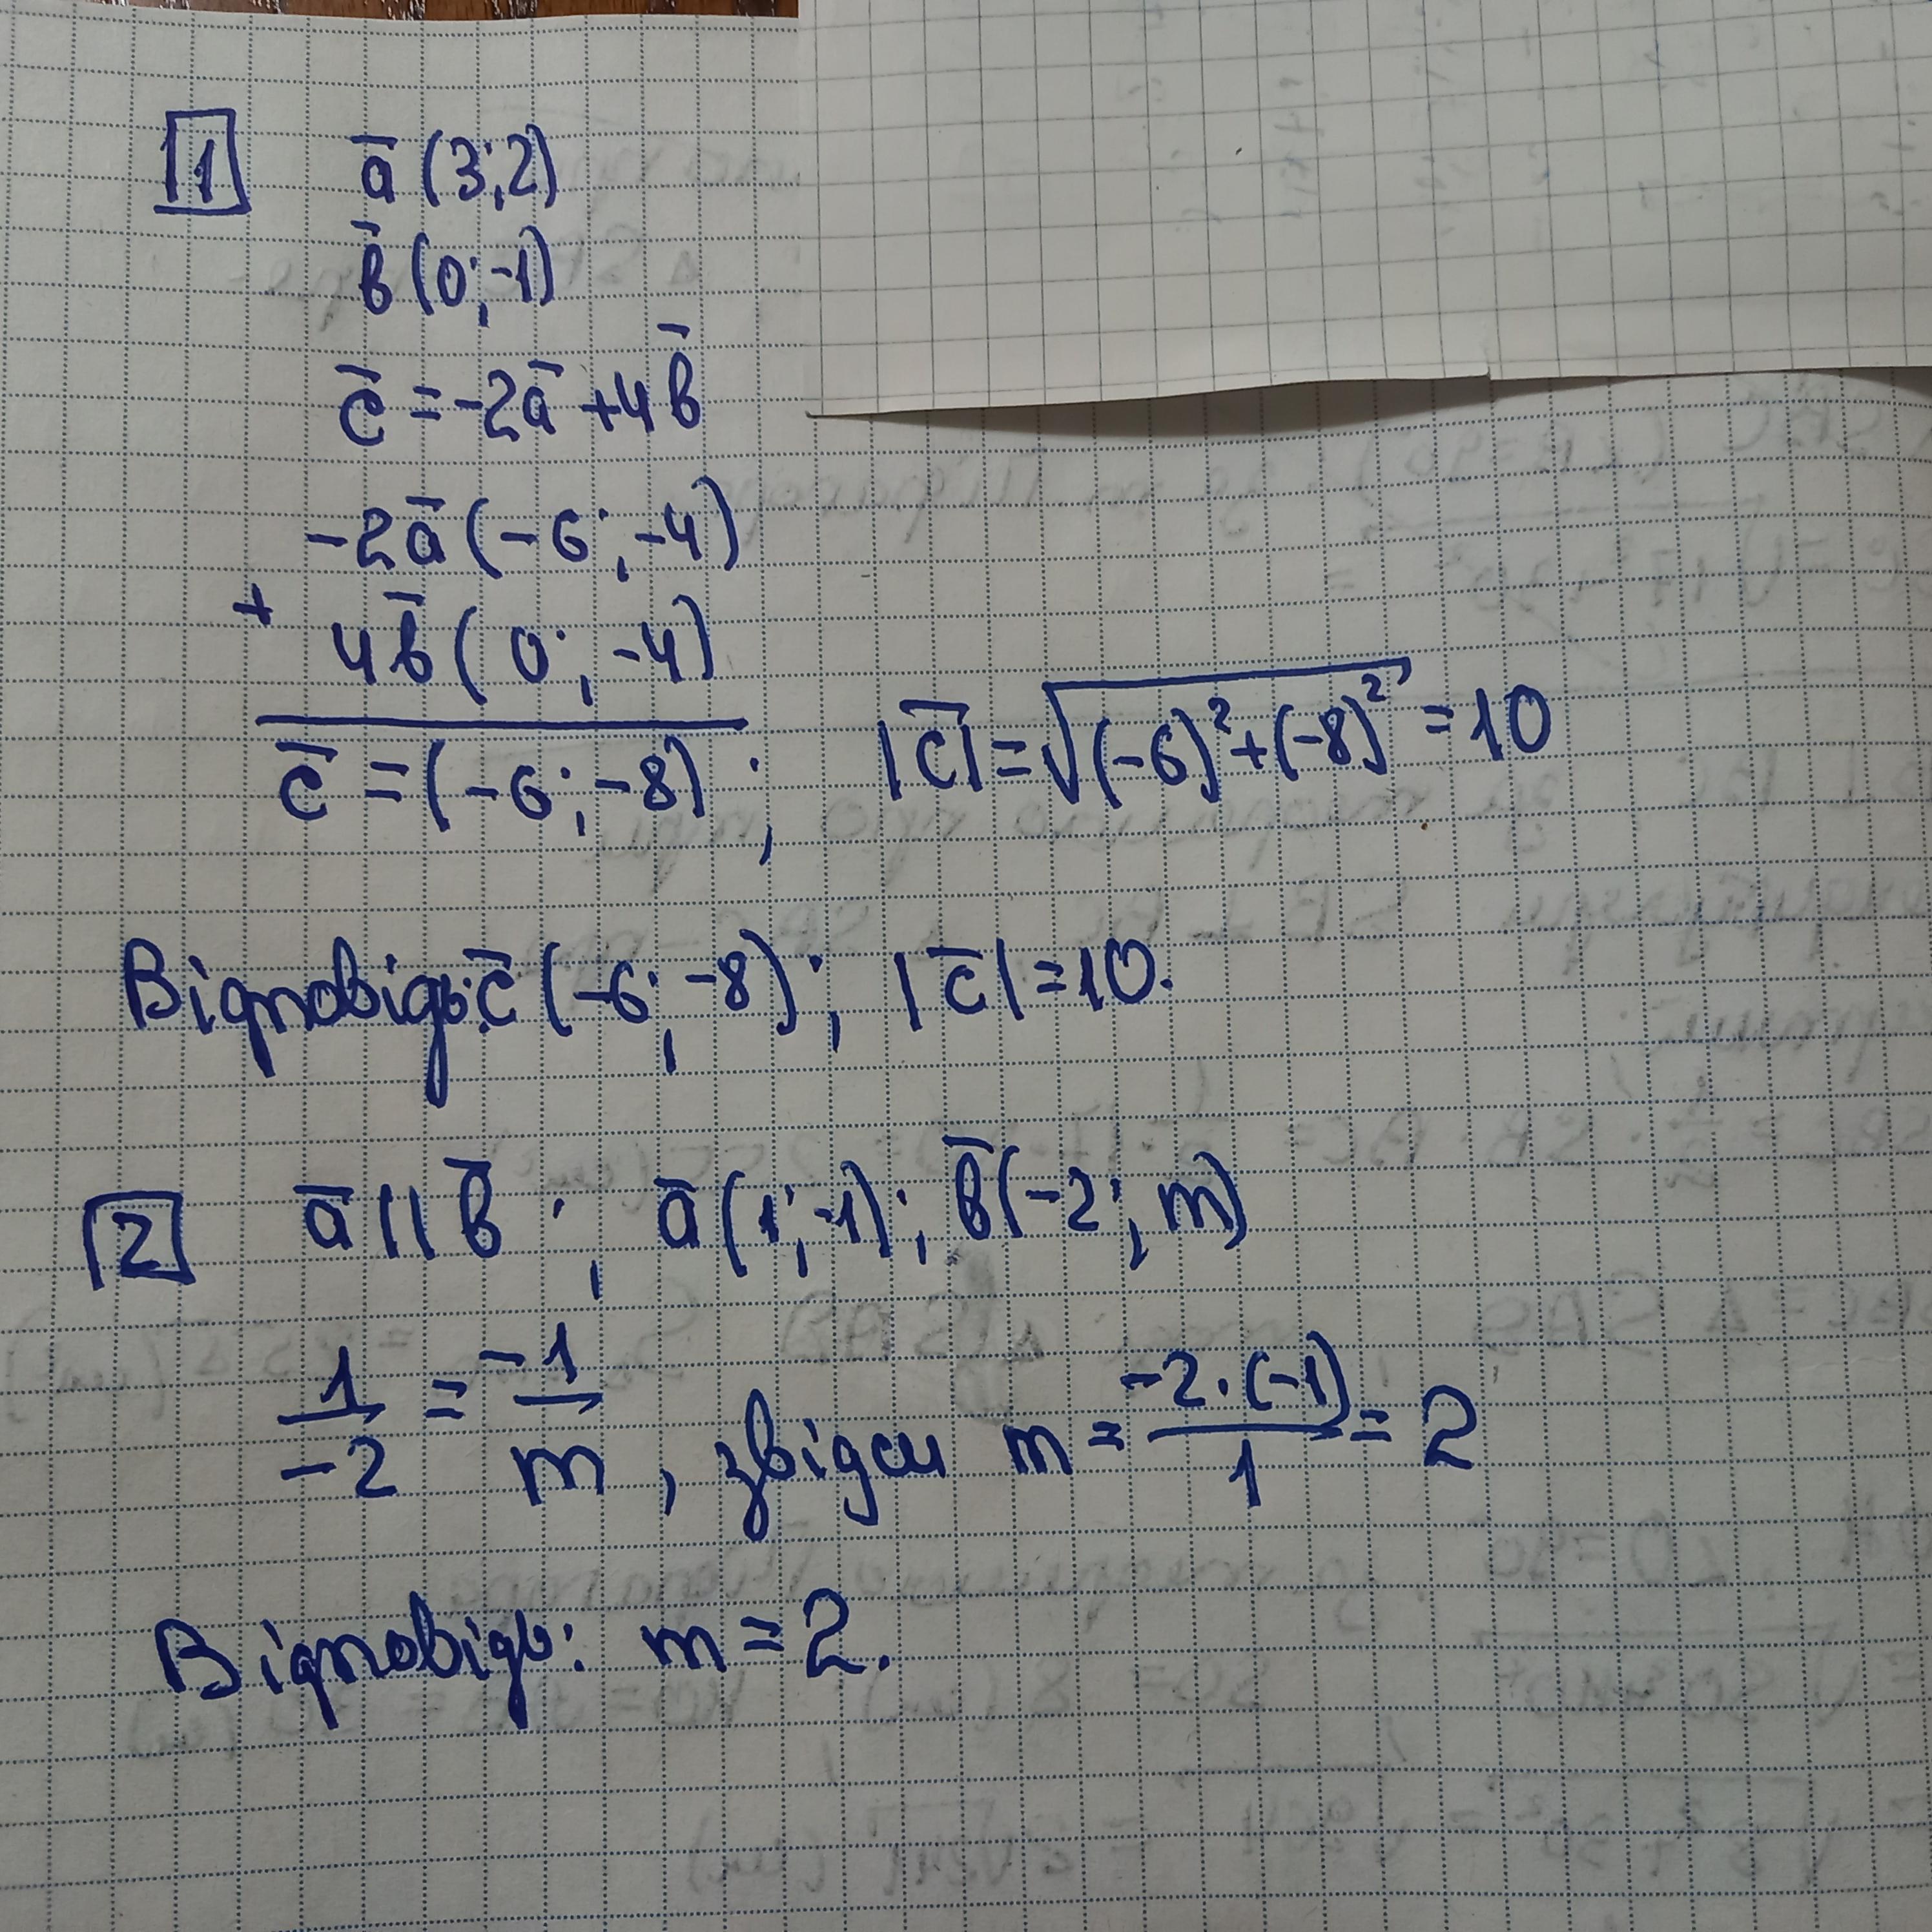 1 a̅ (3; 2)
b̅ (0; -1)
c̅ = -2a̅ + 4b̅
-2a̅ (-6; -4)
+
4b̅ (0; -4)
c̅ = (-6; -8) ; |c̅| = √((-6)² + (-8)²) = 10
Відповідь: c̅ (-6; -8); |c̅| = 10.
2 a̅ || b̅ ; a̅ (1; -1); b̅ (-2; m)
1/-2 = -1/m , звідси m = -2·(-1)/1 = 2
Відповідь: m = 2.